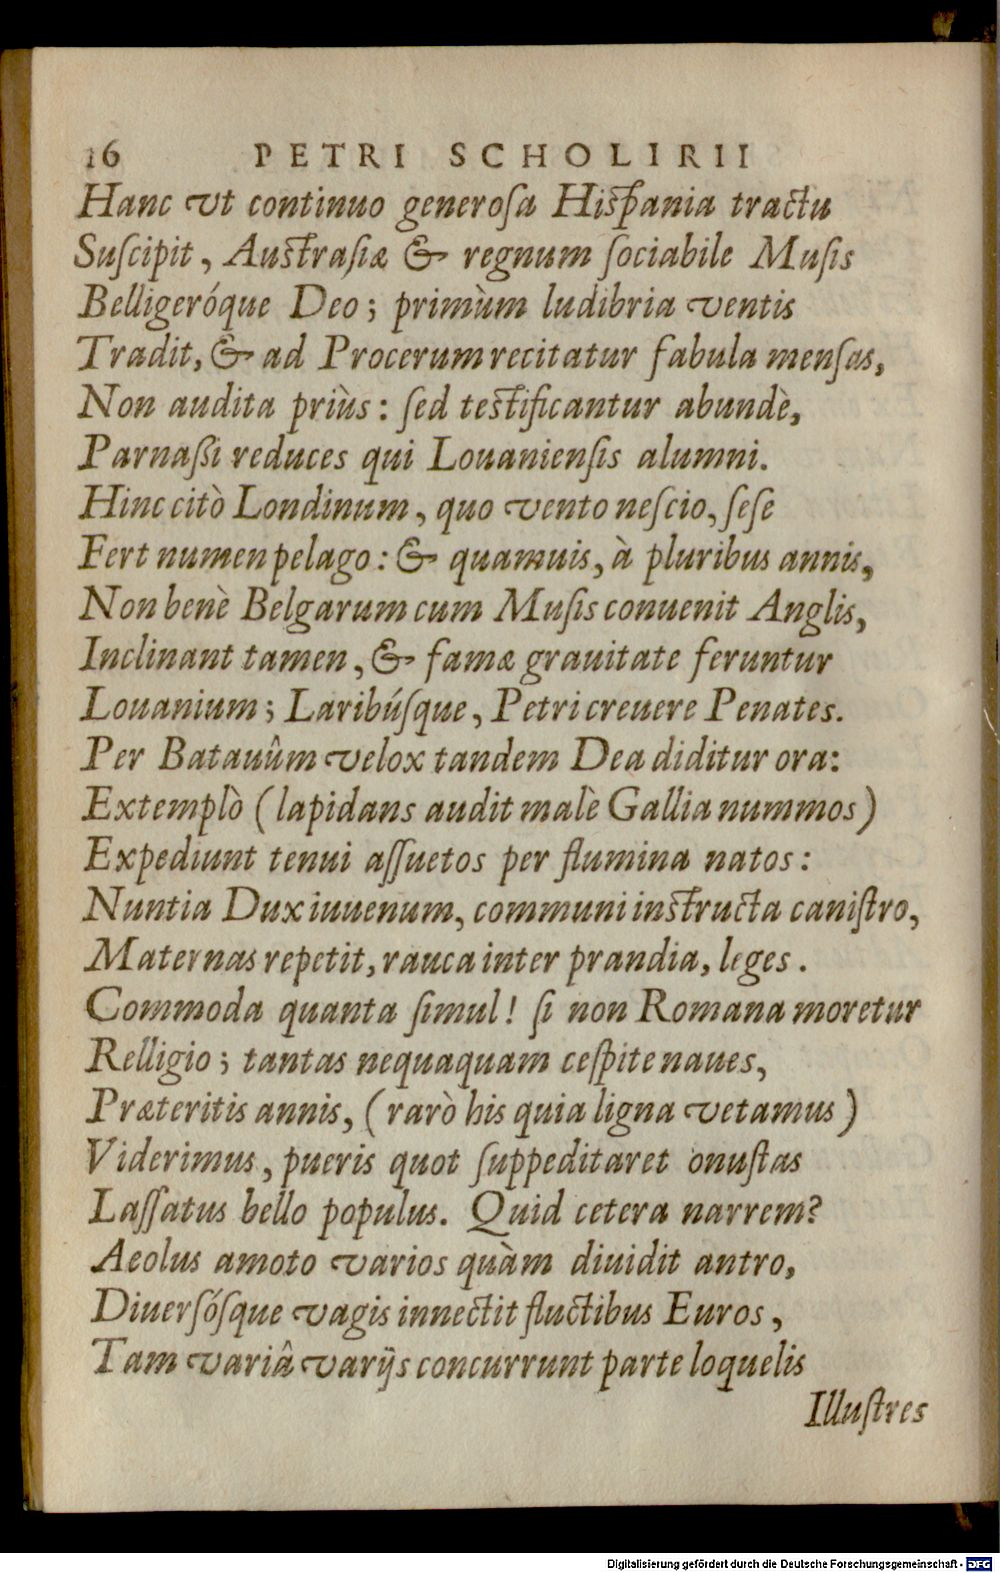 16 PETRI SCHOLIRII
Hanc vt continuo generoſa Hiſpania tractu
Suſcipit, Auſtraſiæ & regnum ſociabile Muſis
Belligeróque Deo; primùm ludibria ventis
Tradit, & ad Procerum recitatur fabula menſas,
Non audita priùs: ſed teſtificantur abundè,
Parnaßi reduces qui Louanienſis alumni.
Hinc citò Londinum, quo vento neſcio, ſeſe
Fert numen pelago: & quamuis, à pluribus annis,
Non benè Belgarum cum Muſis conuenit Anglis,
Inclinant tamen, & famæ grauitate feruntur
Louanium; Laribúſque, Petri creuere Penates.
Per Batauûm velox tandem Dea diditur ora:
Extemplò (lapidans audit malè Gallia nummos)
Expediunt tenui aſſuetos per flumina natos:
Nuntia Dux iuuenum, communi inſtructa caniſtro,
Maternas repetit, rauca inter prandia, leges.
Commoda quanta ſimul! ſi non Romana moretur
Relligio; tantas nequaquam ceſpite naues,
Præteritis annis, (rarò his quia ligna vetamus)
Viderimus, pueris quot ſuppeditaret onuſtas
Laſſatus bello populus. Quid cetera narrem?
Aeolus amoto varios quàm diuidit antro,
Diuersóſque vagis innectit fluctibus Euros,
Tam variâ varijs concurrunt parte loquelis
Illuſtres
Digitalisierung gefördert durch die Deutsche Forschungsgemeinschaft - DFG